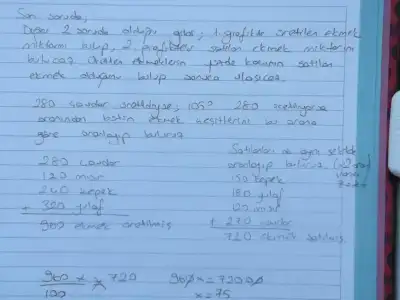 Son soruda;
Diğer 2 soruda olduğu gibi, 1. grafikte üretilen ekmek
miktarını bulup, 2. grafikte satılan ekmek miktarını
bulucaz. Üretilen ekmeklerin yüzde kaçının satılan
ekmek olduğunu bulup sonuca ulaşıcaz.
280 çavdar üretildiyse; 105° 280 üretiliyorsa
oranından bütün ekmek çeşitlerini bu orana
göre oranlayıp buluruz
280 çavdar
120 mısır
240 kepek
+ 320 yulaf
960 ekmek üretilmiş
Satılanları da aynı şekilde
oranlayıp buluruz
150 kepek
180 yulaf
120 mısır
+ 270 çavdar
720 ekmek satılmış
960 x 720
100 x
960x = 72000
x = 75